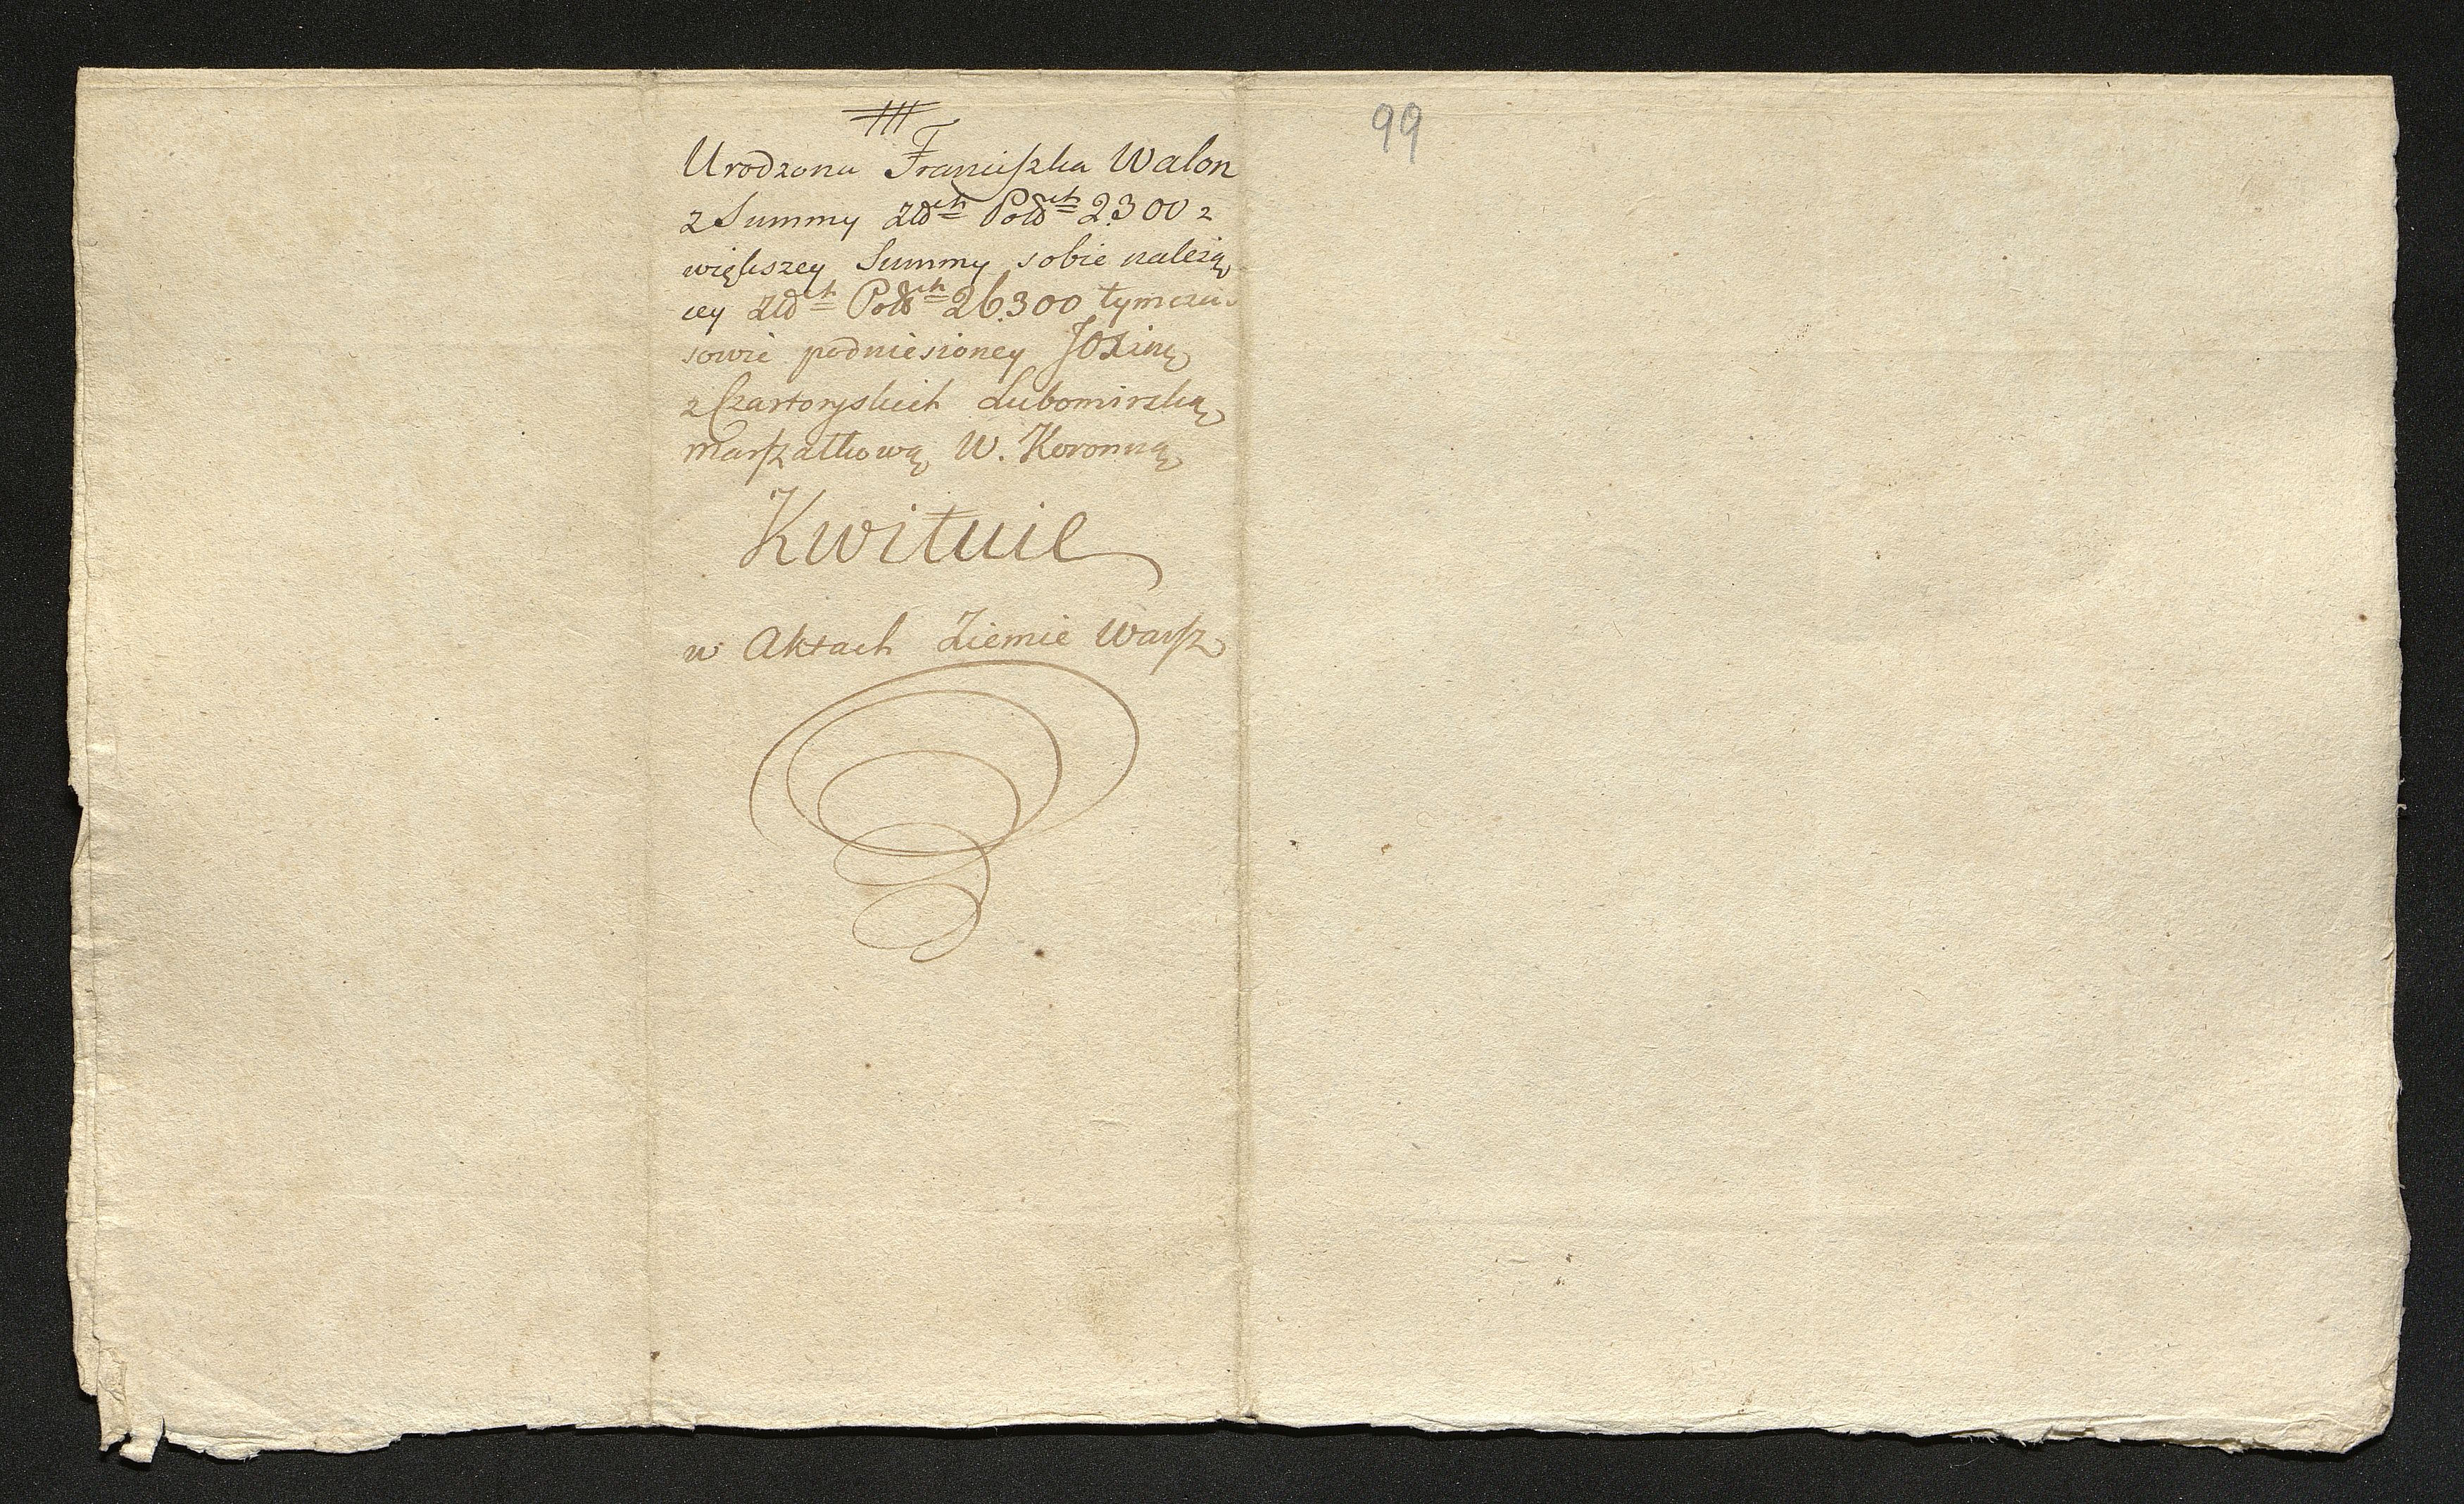 III
99
Urodzona Franciszka Walon
z Summy Złłch Polłch 2300 z
większey Summy sobie należą
cey Złłch Polłch 26300 tymcza
sowie podniesioney JOXimę
z Czartoryskich Lubomirską
Marszałkową W. Koronną
Kwituie
w Aktach Ziemie Warsz